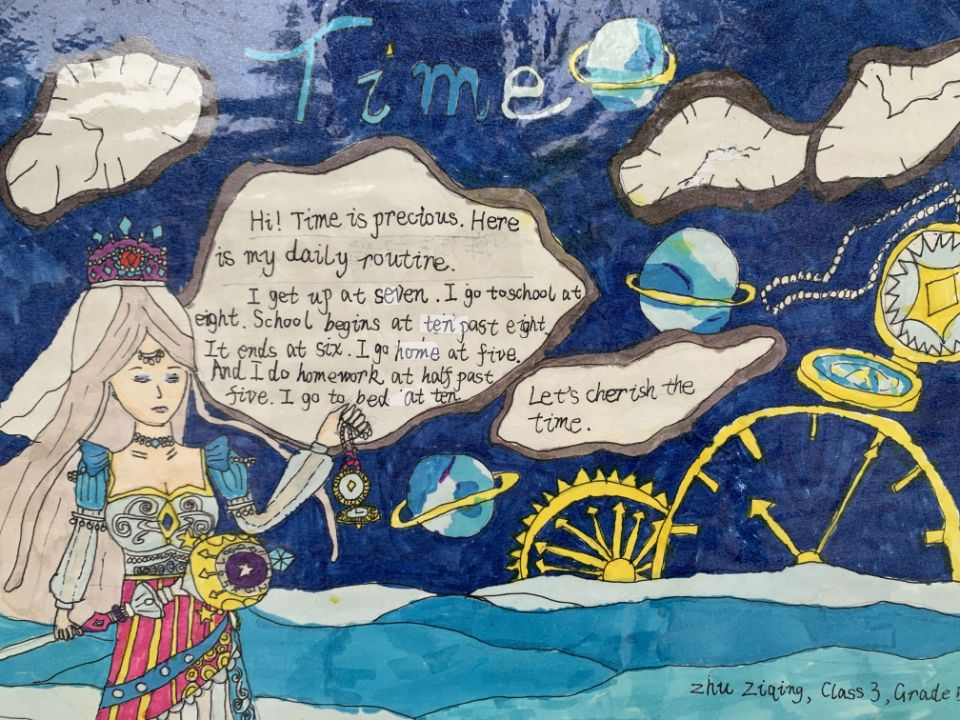 Time
Hi! Time is precious. Here
is my daily routire.
I get up at seven. I go toschool at
eight. School begins at ten past eight.
It ends at six. I go home at five.
And I do homework at half past
five. I go to bed at ten.
Let's cherish the
time.
Zhu Ziqing, Class 3, Grade